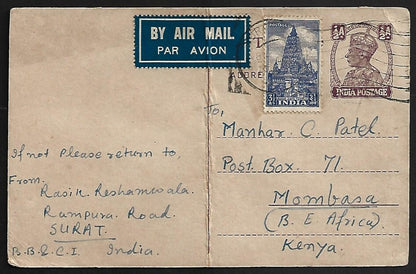 BY AIR MAIL
PAR AVION
POSTAGE
INDIA
½A
INDIA POSTAGE
To,
Manhar C Patel
Post Box 71
Mombasa
(B. E. Africa).
Kenya.
If not Please return to,
From.
Rasik Reshamwala.
Rampura Road.
SURAT.
B.B.&.C.I India.